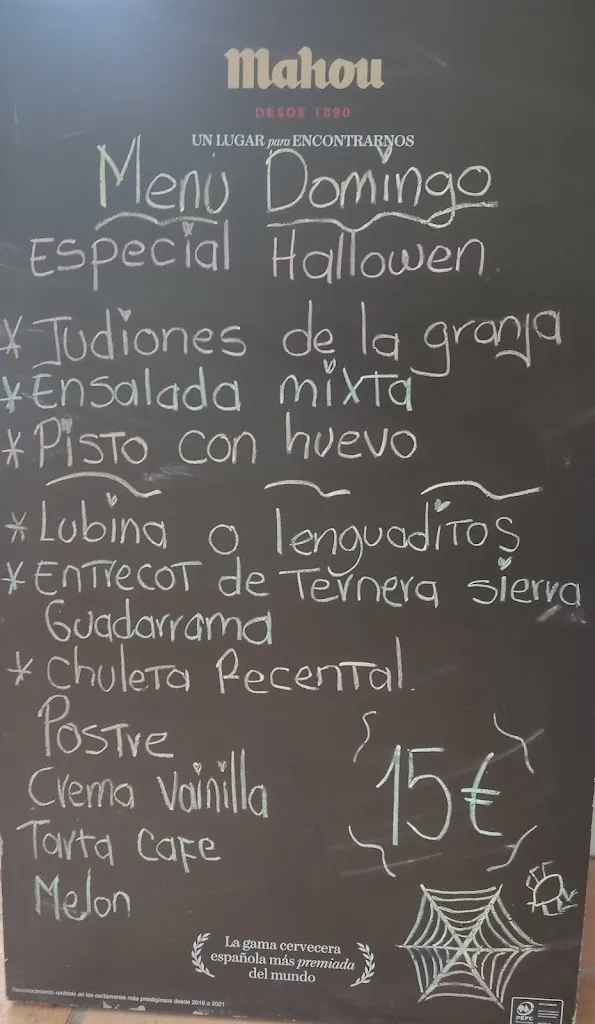 Mahou
DESDE 1890
UN LUGAR para ENCONTRARNOS
Menú Domingo
Especial Hallowen
* Judiones de la granja
* Ensalada mixta
* Pisto con huevo
* Lubina o lenguaditos
* Entrecot de Ternera sierra
Guadarrama
* Chuleta Recental.
Postre
Crema Vainilla
Tarta Cafe
Melon
15€
La gama cervecera
española más premiada
del mundo
Reconocimiento recibido en los certámenes más prestigiosos desde 2018 a 2021
PEFC